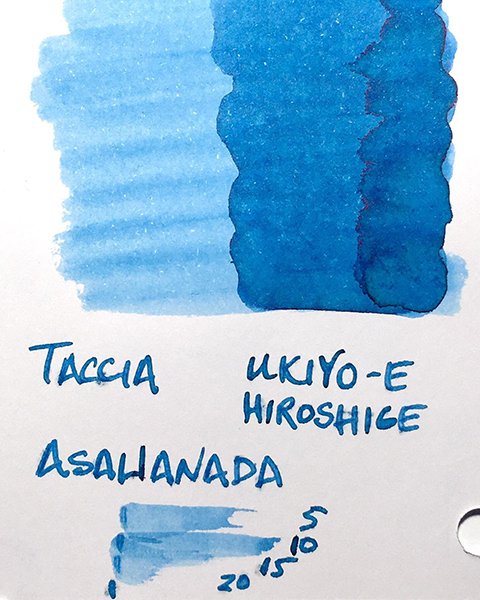 TACCIA UKIYO-E
HIROSHIGE
ASAHANADA
5
10
15
20